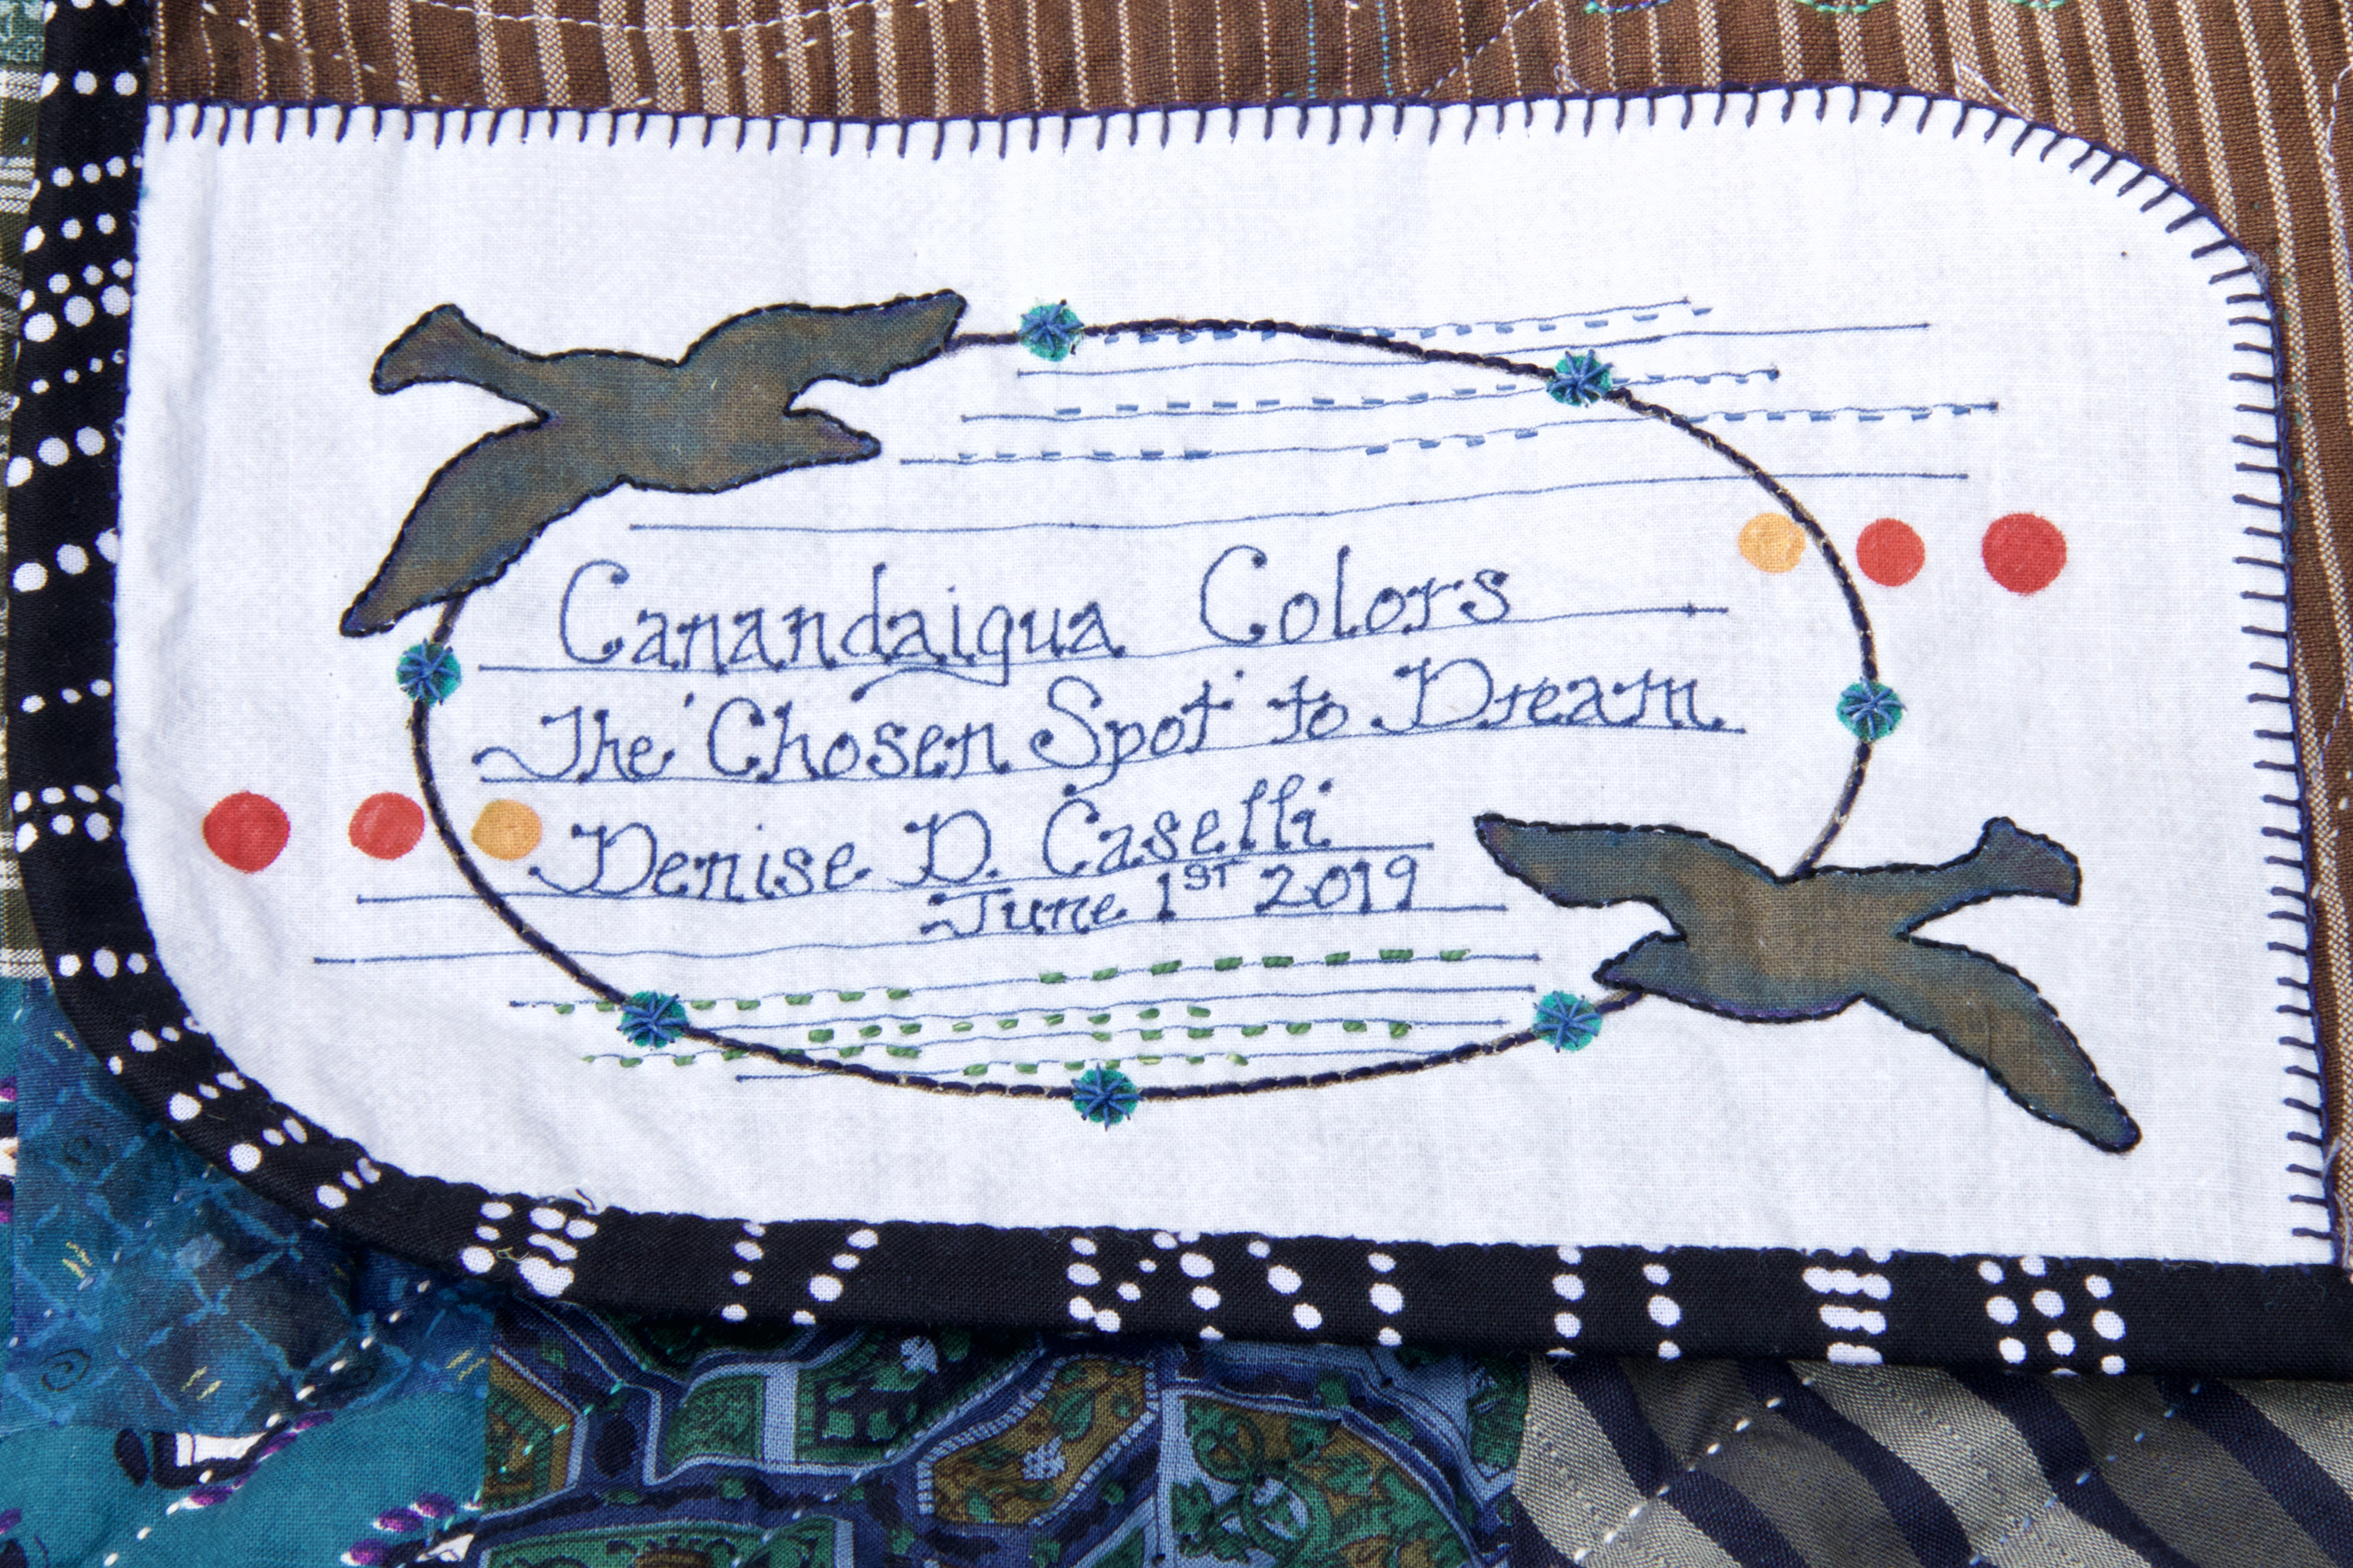 Canandaigua Colors
The 'Chosen Spot' to Dream
Denise D. Caselli
June 1ST 2019